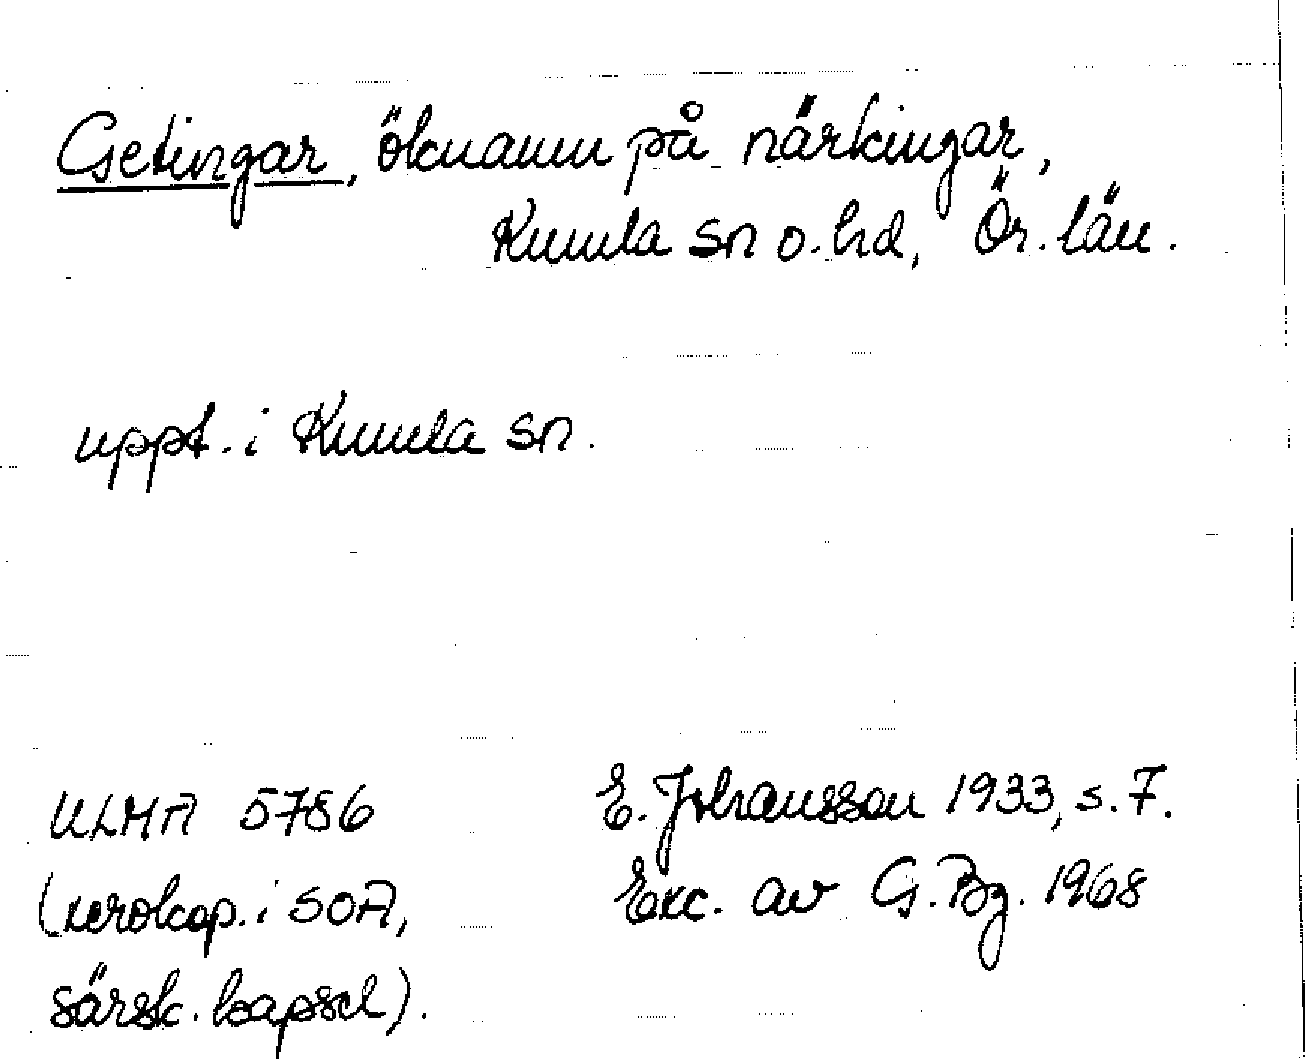 Getingar, öknamn på närkingar,
Kumla sn o. hd, Ör. län.
uppt. i Kumla sn.
ULMA 5786
(xerokop. i SOA,
särsk. kapsel).
E. Johansson 1933, s. 7.
Exc. av G. Bg. 1968